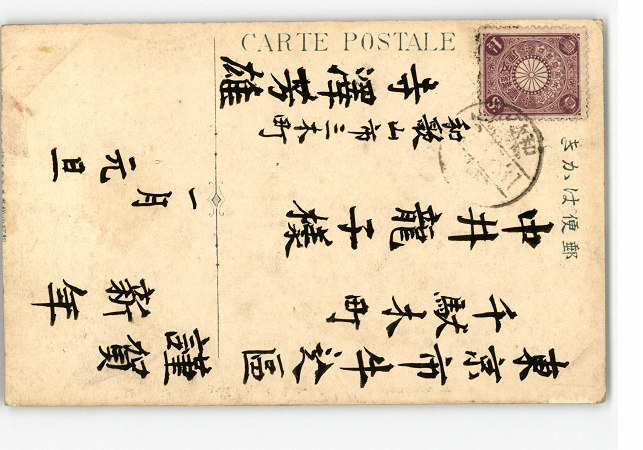 CARTE POSTALE
郵便はかき
東京市牛込區
千駄木町
中井龍子様
和歌山市三木町
寺澤芳雄
謹賀
新年
一月
元旦